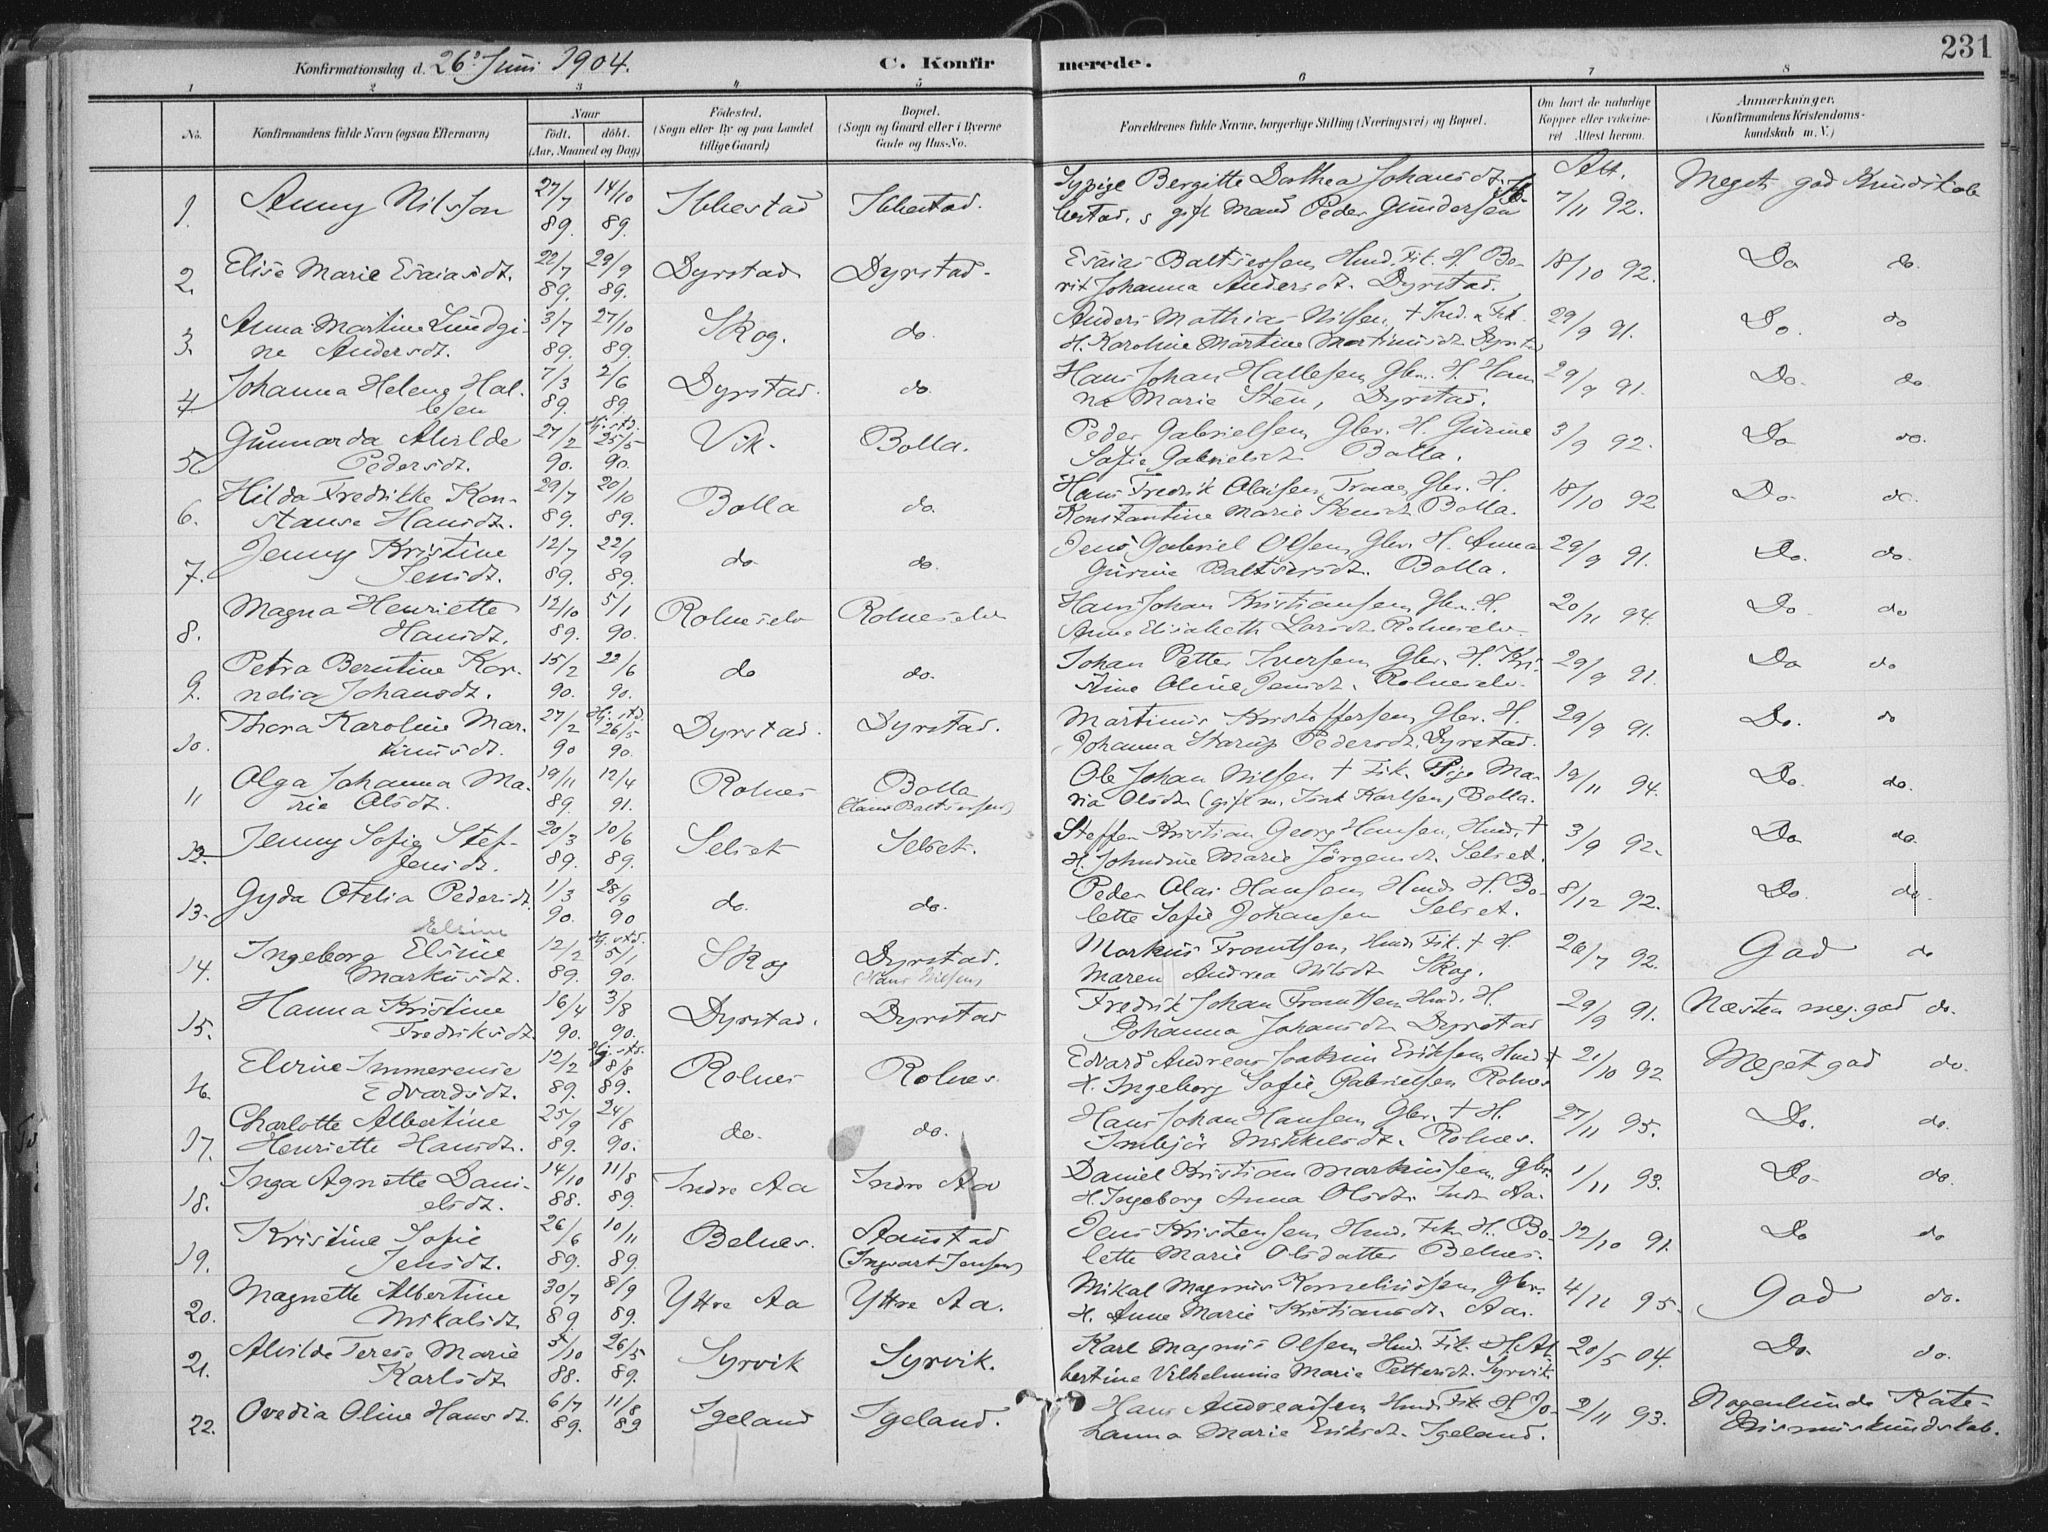 231
Konfirmationsdag d. 26de Juni 1904.
C. Konfirmerede.
1 2 3 4 5 6 7 8
No.
Konfirmandens fulde Navn (ogsaa Efternavn)
Naar
födt. döbt.
(Aar, Maaned og Dag)
Födested.
(Sogn eller By og paa Landet
tillige Gaard)
Bopæl.
(Sogn og Gaard eller i Byerne
Gade og Hus-No.
Forældrenes fulde Navne, borgerlige Stilling (Næringsvei) og Bopæl.
Om havt de naturlige
Kopper eller vakcine-
ret Attest herom.
Anmærkninger.
(Konfirmandens Kristendoms-
kundskab m. V.)
1. Anny Nilsson 27/7 89. 14/10 89. Ibbestad Ibbestad. Sypige Bergitte Dorthea Johansdt. Ib-
bestad, s gift Mand Peder Gundersen Att. 7/11 92. Meget god Kundskab
2. Elise Marie Esaiasdt. 22/7 89. 29/9 89. Dyrstad Dyrstad. Esaias Baltsersen, Husd. Fik. H. Bo-
rit Johanna Andersdt. Dyrstad. 18/10 92. Do do.
3. Anna Martine Lundgi-
ne Andersdt. 3/7 89. 27/10 89. Skog. do. Anders Mathias Nilsen, + Ind. & Fik.
H. Karoline Martine Martinusdt. Dyrstad 29/9 91. Do. do
4 Johanna Helene Hal-
lesen 7/3 89. 2/6 89. Dyrstad. do. Hans Johan Hallesen, Gbr. H. Han
na Marie Sten, Dyrstad. 29/9 91. Do. do
5. Gunnarda Alvilde
Pedersdt. 27/2 90. Hj. std. 25/5 90. Vik. Bolla. Peder Gabrielsen, Gbr. H. Gurine
Sofie Gabrielsdt. Bolla. 3/9 92. Do do.
6. Hilda Fredrikke Kon-
stanse Hansdt. 29/7 89. 20/10 89. Bolla do. Hans Fredrik Olaisen, Gbr. H.
Konstantine Marie Stensdt. Bolla. 18/10 92 Do do.
7. Jenny Kristine
Jensdt. 12/7 89. 22/9 89. do do. Jens Gabriel Olsen, Gbr. H. Anna
Gurine Baltsersdt. Bolla. 29/9 91. Do. do.
8. Magna Henriette
Hansdt. 12/10 89. 5/1 90. Rolneselv Rolneselv Hans Johan Kristiansen, Gbr. H.
Anne Elisabeth Larsdt. Rolneselv. 20/11 94. Do. do
9. Petra Berntine Kor-
nelia Johansdt. 15/2 90. 22/6 90. do do. Johan Petter Iversen, Gbr. H. Kri-
stine Oline Jensdt. Rolneselv. 29/9 91. Do do
10. Thora Karoline Mar-
tinusdt. 27/2 90 Hj. std. 26/5 90. Dyrstad. Dyrstad. Martinus Kristoffersen, Gbr. H.
Johanna Starup Pedersdt. Dyrstad. 29/9 91. Do. do
11 Olga Johanna Ma-
rie Olsdt. 19/11 89. 12/4 91. Rolnes Bolla
(Hans Baltsersen) Ole Johan Nilsen + Fik. Pige Ma-
ria Olsdt. (gift m. Karlsen) Bolla. 19/11 94. Do. do.
12. Jenny Sofie Stef-
fensdt. 20/3 89. 10/6 89. Selset Selset. Steffen Kristian Georg Hansen, Husd. +
H. Johndine Marie Jörgensdt. Selset. 3/9 92. Do do.
13. Gyda Otelia Pedersdt. 1/3 90. 28/9 90 do. do. Peder Olai Hansen, Husd. H. Bo-
lette Sofie Johansen Selset. 8/12 92. Do. do.
14. Elsine
Ingeborg Elsine
Markusdt. 12/2 89. Hj. std. 5/1 90. Skog Dyrstad.
(Hans Nilsen) Markus Frantsen, Husd. Fik. + H.
Maren Andrea Nilsdt. Skog. 26/7 92. God do
15. Hanna Kristine
Fredriksdt. 16/4 90. 3/8 90. Dyrstad. Dyrstad Fredrik Johan Frantsen Husd. H.
Johanna Johansdt. Dyrstad 29/9 91. Næsten meg. god do.
16. Elvine Immerense
Edvardsdt. 12/2 89. Hj. std. 8/8 89. Rolnes Rolnes. Edvard Andreas Joakim Eriksen, Husd +
H. Ingeborg Sofie Gabrielsen Rolnes 21/10 92 Meget god do.
17. Charlotte Albertine
Henriette Hansdt. 25/9 89. 24/8 90. do. do. Hans Johan Hansen, Gbr. + H.
Imbejör Mikkelsdt. Rolnes. 27/11 95. Do. do.
18. Inga Agnette Dani-
elsdt. 14/10 88. 11/8 89. Indre Aa Indre Aa Daniel Kristian Markussen, Gbr.
H. Ingeborg Anna Olsdt. Indr. Aa. 1/11 93. Do. do.
19. Kristine Sofie
Jensdt. 26/6 89. 10/11 89. Belnes. Aanstad
(Ingvart Jensen) Jens Kristensen, Husd. Fik. H. Bo-
lette Marie Olsdatter Belnes. 12/10 91. Do do
20. Magnette Albertine
Mikalsdt. 30/7 89 8/9 89. Yttre Aa Yttre Aa. Mikal Magnus Korneliussen, Gbr.
H. Anne Marie Kristiansdt. Aa. 4/11 95. God do.
21. Alvilde Terese Marie
Karlsdt 5/10 88. 26/5 89. Syrvik Syrvik. Karl Magnus Olsen, Husd. Fik. H. Al-
bertine Vilhelmine Marie Pettersdt. Syrvik. 20/5 04. Do. do.
22. Ovedia Oline Hansdt. 6/7 89. 11/8 89 Igeland Igeland. Hans Andreassen, Husd. Fik. H. Jo-
hanna Marie Eriksdt. Igeland. 2/11 93. Nogenlunde Kate-
kismuskundskab.